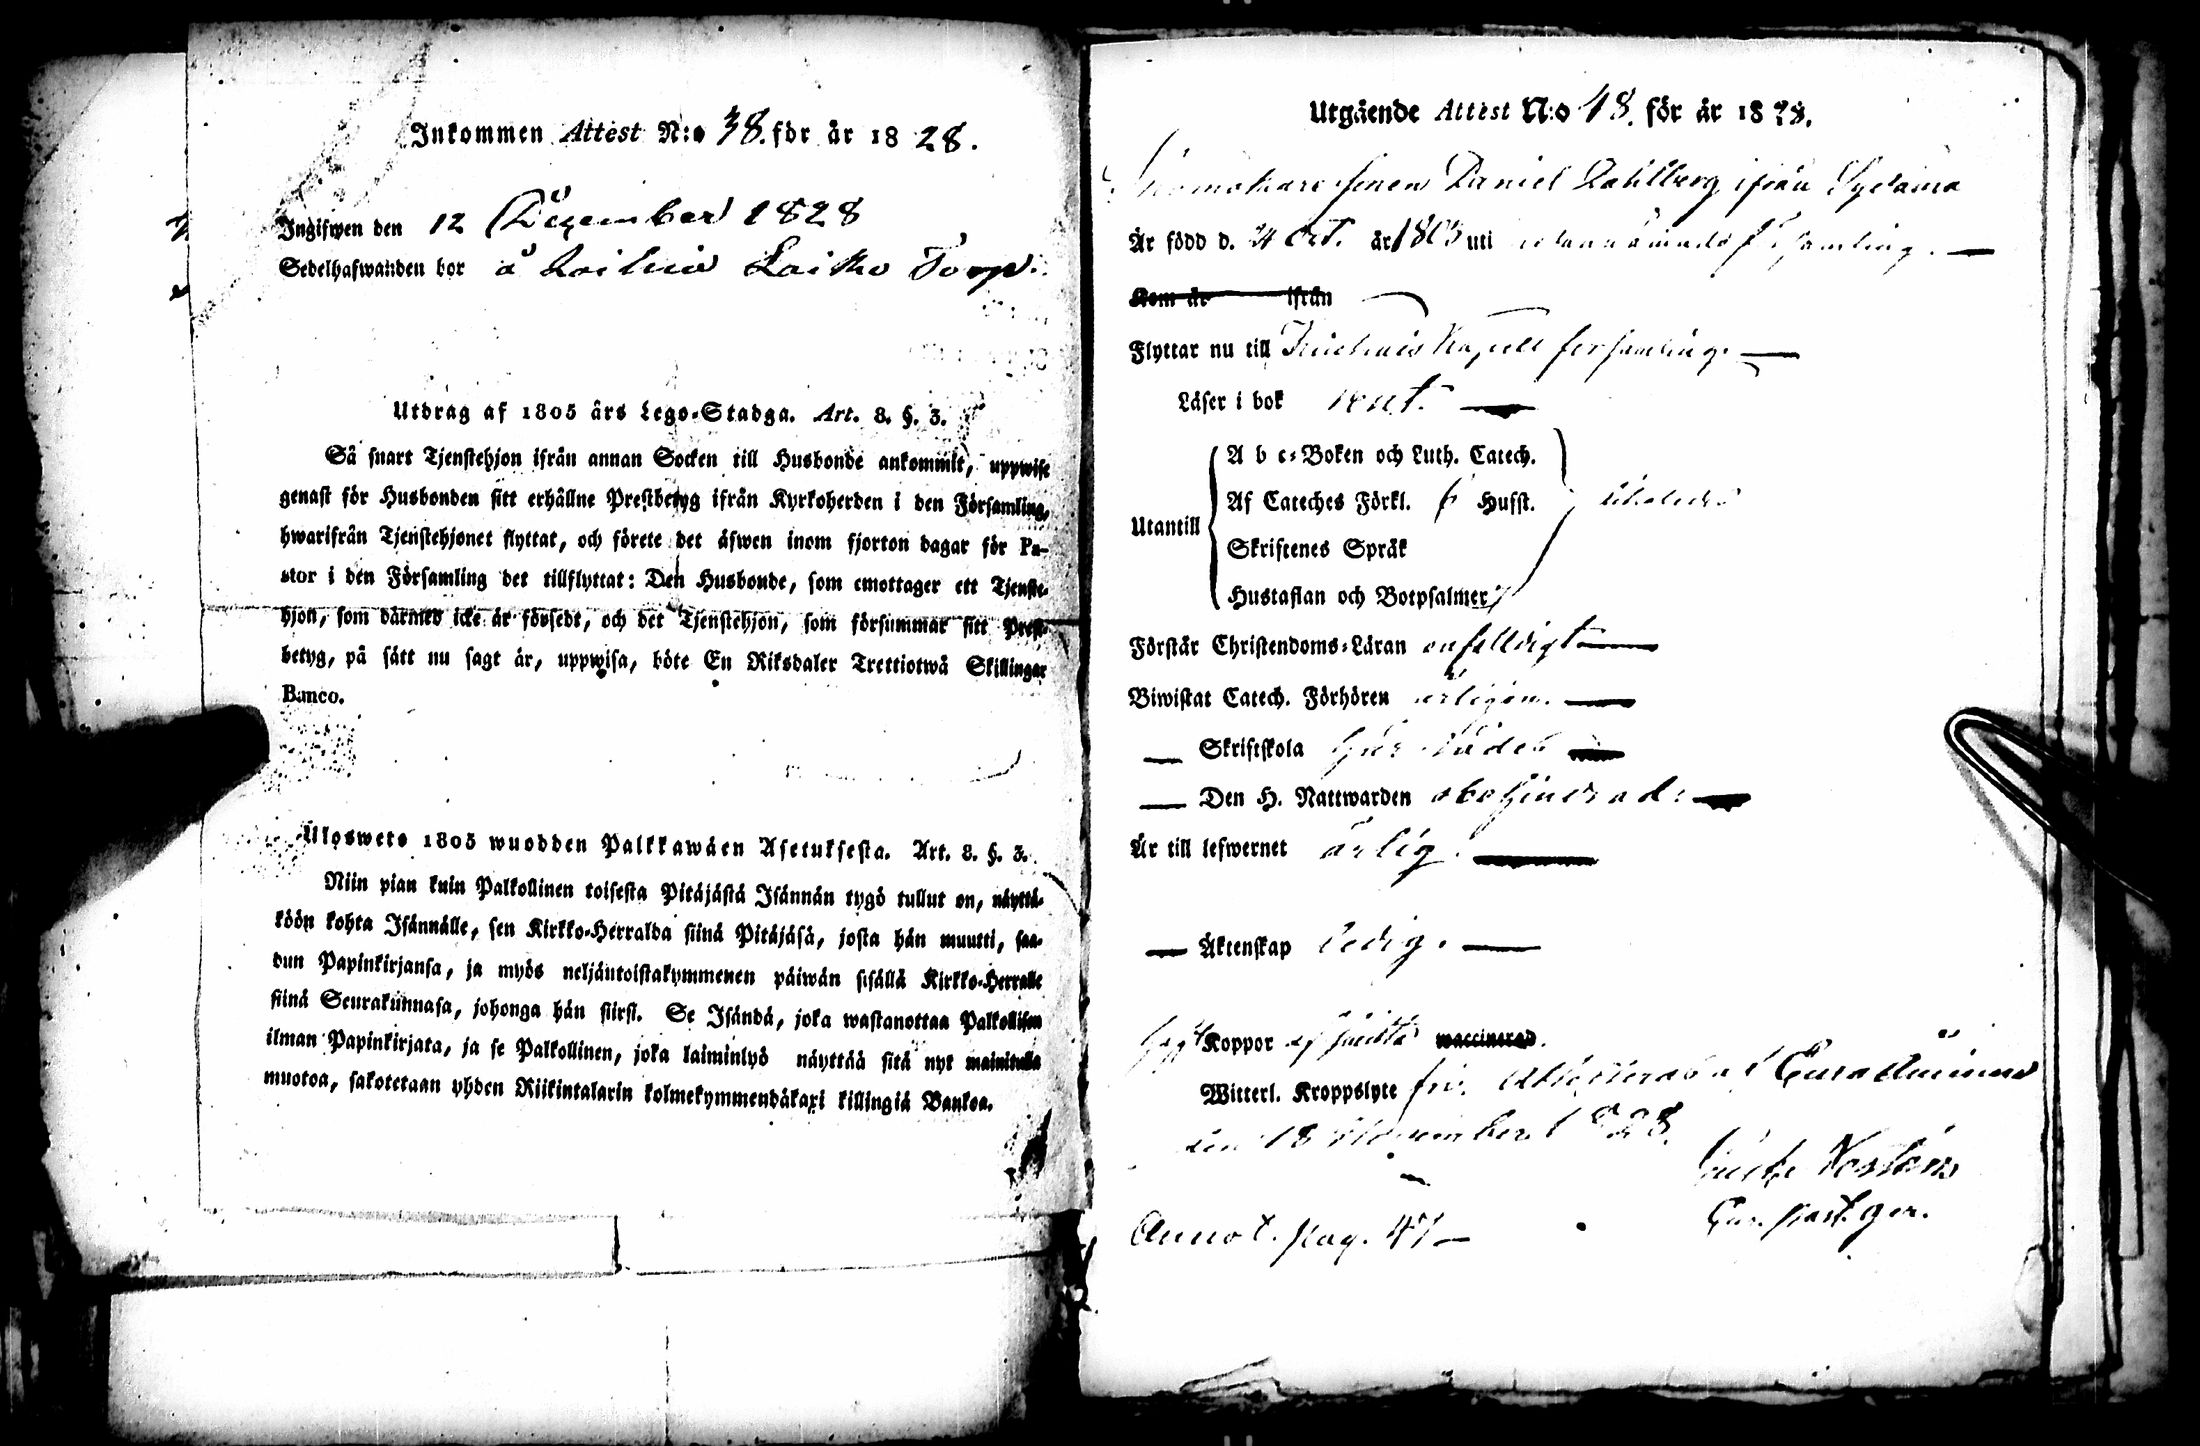 Inkommen Attest N:o 38. för år 1828.
Ingifwen den 12 December 1828
Sedelhafwanden bor å Laiko Torp.
Utdrag af 1805 års Lego-Stadga. Art. 8. §. 3.
Så snart Tjenstehjon ifrån annan Socken till Husbonde ankommit, uppwise
genast för Husbonden sitt erhållne Prestbetyg ifrån Kyrkoherden i den Församling,
hwarifrån Tjenstehjonet flyttat, och förete det äfwen inom fjorton dagar för Pa-
stor i den Församling det tillflyttat: Den Husbonde, som emottager ett Tjenste-
hjon, som därmed icke är försedt, och det Tjenstehjon, som försummar sitt Prest-
betyg, på sätt nu sagt är, uppwisa, böte En Riksdaler Trettiotwå Skillingar
Banco.
Ulosweto 1805 wuodden Palkkawäen Asetuksesta. Art. 8. §. 3.
Niin pian kuin Palkollinen toisesta Pitäjästä Isännän tygö tullut on, näyttä-
köön kohta Isännälle, sen Kirkko-Herralda siinä Pitäjäsä, josta hän muutti, saa-
dun Papinkirjansa, ja myös neljäntoistakymmenen päiwän sisällä Kirkko-Herralle
siinä Seurakunnasa, johonga hän siirst. Se Isändä, joka wastanottaa Palkollisen
ilman Papinkirjata, ja se Palkollinen, joka laiminlyö näyttää sitä nyt mainitulla
muotoa, sakotetaan yhden Riikintalarin kolmekymmendäkaxi killingiä Bankoa.
Utgående Attest N:o 48. för år 1828.
Skomakaresonen Daniel Dahlberg ifrån
Är född d. 24 Oct. år 1805 uti församling.
Kom år ifrån
Flyttar nu till Kapell församling.
Läser i bok rent.
Utantill
A b c-Boken och Luth. Catech.
Af Cateches Förkl. Hufst.
Skriftenes Språk
Hustaflan och Botpsalmer
likaledes
Förstår Christendoms-Läran enfaldigt
Biwistat Catech. Förhören årligen.
Skriftskola
Den H. Nattwarden obehindrad:
Är till lefwernet ärlig.
Äktenskap ledig.
Haft Koppor ej waccinerad.
Witterl. Kroppslyte fri. Attesteras af Euraåminne
den 18 November 1828.
Annot. pag. 47